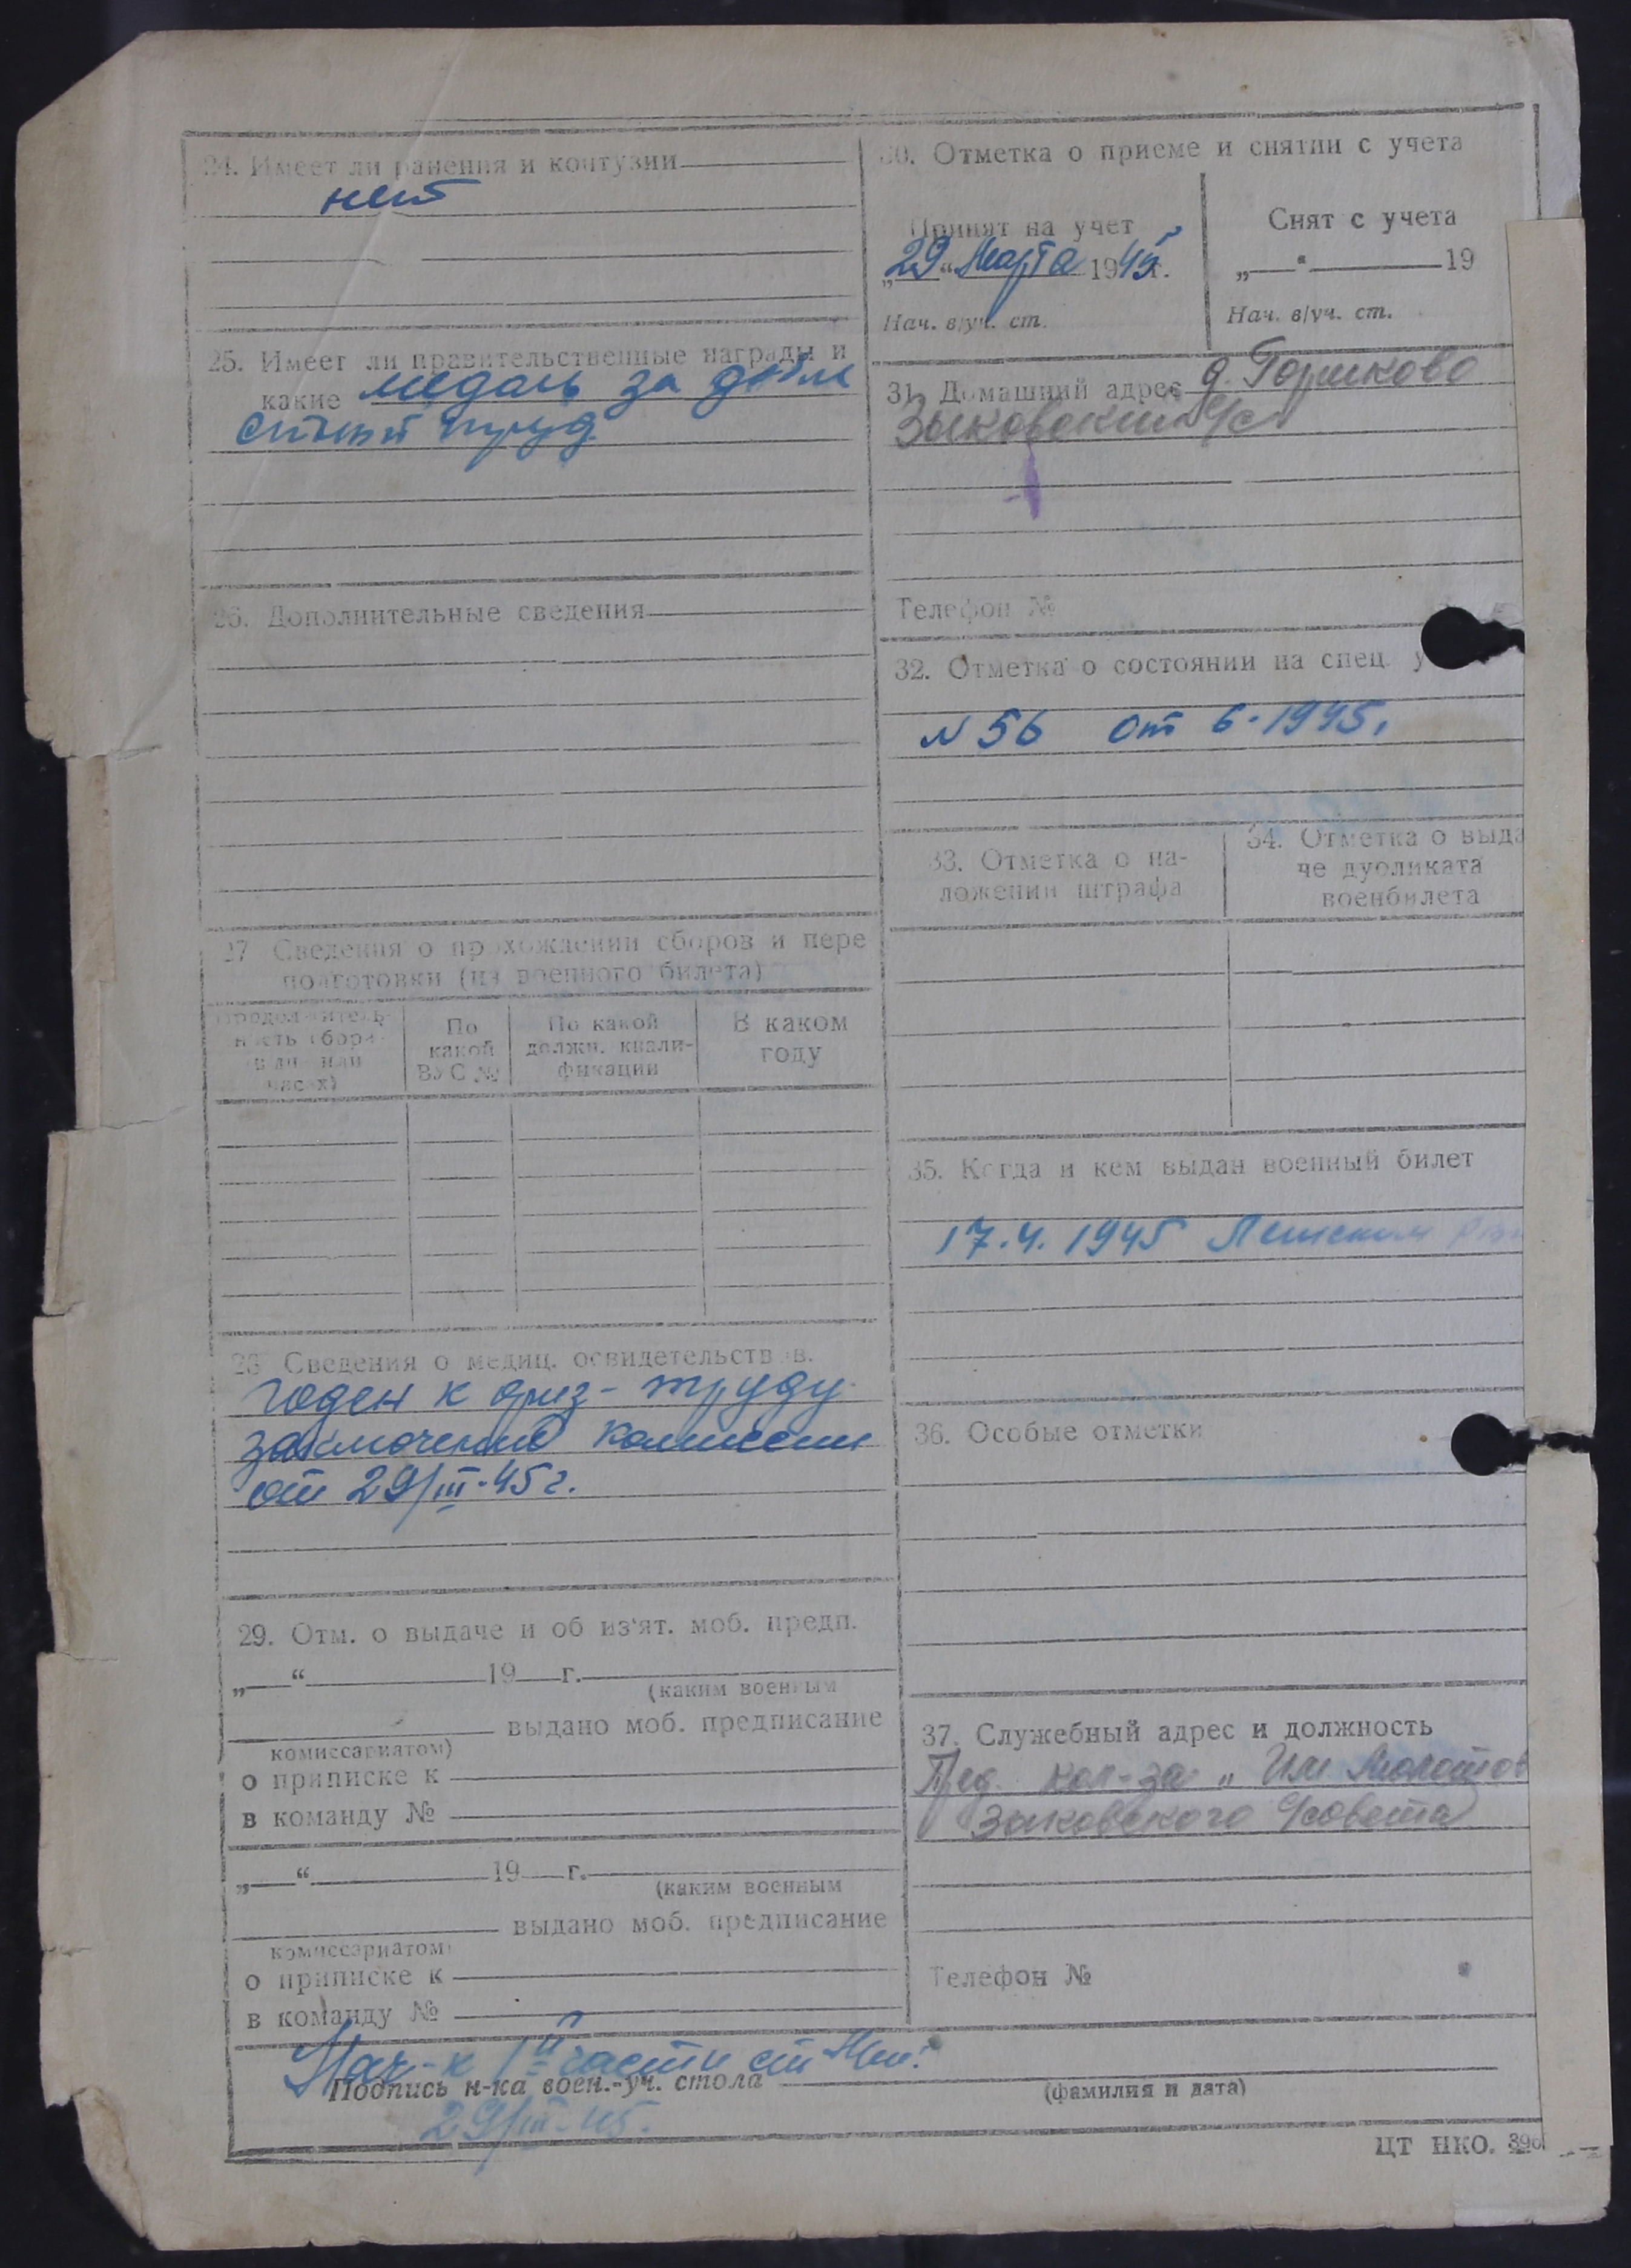 24. Имеет ли ранения и контузии
нет
25. Имеет ли правительственные награды и
какие медаль за добле
стный труд
26. Дополнительные сведения
27 Сведения о прохождении сборов и пере
подготовки (из военного билета)
Продолжитель-
ность сбора
(в дн. или
часах)
По
какой
ВУС №
По какой
должн. квали-
фикации
В каком
году
28 Сведения о медиц. освидетельствов.
годен к физ-труду
заключение комиссии
от 29/III-45г.
29. Отм. о выдаче и об из'ят. моб. предп.
„ “ 19 г.
(каким военным
выдано моб. предписание
комиссариатом)
о приписке к
в команду №
„ “ 19 г.
(каким военным
выдано моб. предписание
комиссариатом)
о приписке к
в команду №
30. Отметка о приеме и снятии с учета
Принят на учет
„29“ Марта 1945г.
Нач. в/уч. ст.
Снят с учета
„ “ 19
Нач. в/уч. ст.
31. Домашний адрес д. Горшково
Зыковский с/с
Телефон №
32. Отметка о состоянии на спец. у
N 56 от 6-1945г
33. Отметка о на-
ложении штрафа
34. Отметка о выда
че дубликата
военбилета
35. Когда и кем выдан военный билет
17.4.1945
36. Особые отметки
37. Служебный адрес и должность
Пред. кол-за „Им Молотов
Зыковского с/совета
Телефон №
Нач-к части
Подпись н-ка воен.-уч. стола
(фамилия и дата)
29/III-45.
ЦТ НКО. 390